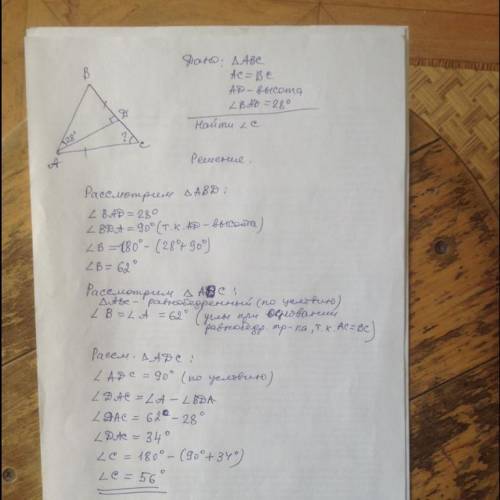 B
D
28°
?
A
C
Дано: △ABC
AC = BC
AD - высота
∠BAD = 28°
Найти ∠C
Решение.
Рассмотрим △ABD:
∠BAD = 28°
∠BDA = 90° (т.к. AD - высота)
∠B = 180° - (28° + 90°)
∠B = 62°
Рассмотрим △ABC:
△ABC - равнобедренный (по условию)
∠B = ∠A = 62° (углы при основании
равнобедр. тр-ка, т.к. AC = BC)
Рассм. △ADC:
∠ADC = 90° (по условию)
∠DAC = ∠A - ∠BDA
∠DAC = 62° - 28°
∠DAC = 34°
∠C = 180° - (90° + 34°)
∠C = 56°